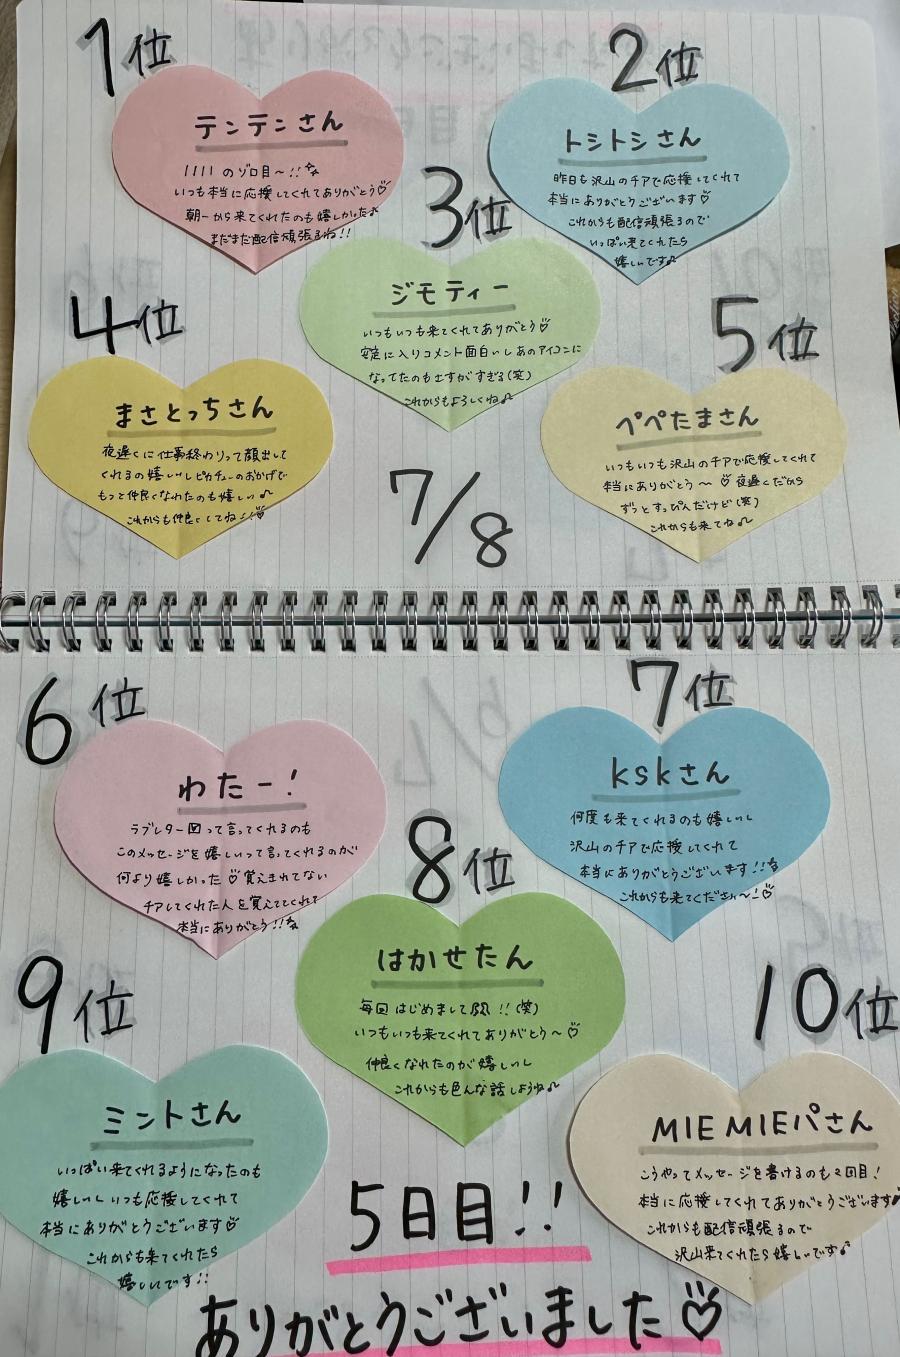 1位
テンテンさん
1111 のゾロ目〜!!
いつも本当に応援してくれてありがとう♡
朝一から来てくれたのも嬉しかった♪
まだまだ配信頑張るね!!
2位
トシトシさん
昨日も沢山のチアで応援してくれて
本当にありがとうございます♡
これからも配信頑張るので
いっぱい来てくれたら
嬉しいです♪
3位
ジモティー
いつもいつも来てくれてありがとう♡
安定に入りコメント面白いしあのアイコンに
なってたのもさすがすぎる(笑)
これからもよろしくね♪
4位
まさとっちさん
夜遅くに仕事終わりって顔出して
くれるの嬉しいしピカチューのおかげで
もっと仲良くなれたのも嬉しい♪
これからも仲良くしてね♪♡
5位
ぺぺたまさん
いつもいつも沢山のチアで応援してくれて
本当にありがとう〜♡夜遅くだから
ずっとすっぴんだけど(笑)
これからも来てね♪
7/8
6位
わたー!
ラブレター図って言ってくれるのも
このメッセージを嬉しいって言ってくれるのが
何より嬉しかった♡覚えきれてない
チアしてくれた人を覚えててくれて
本当にありがとう!!
7位
kskさん
何度も来てくれるのも嬉しいし
沢山のチアで応援してくれて
本当にありがとうございます!!
これからも来てくださいー!♡
8位
はかせたん
毎回はじめまして!!(笑)
いつもいつも来てくれてありがとう〜♡
仲良くなれたのが嬉しいし
これからも色んな話しようね♪
9位
ミントさん
いっぱい来てくれるようになったのも
嬉しいしいつも応援してくれて
本当にありがとうございます♡
これからも来てくれたら
嬉しいです!!
10位
MIE MIEパさん
こうやってメッセージを書けるのも2回目!
本当に応援してくれてありがとうございます
これからも配信頑張るので
沢山来てくれたら嬉しいです♪
5日目!!
ありがとうございました♡